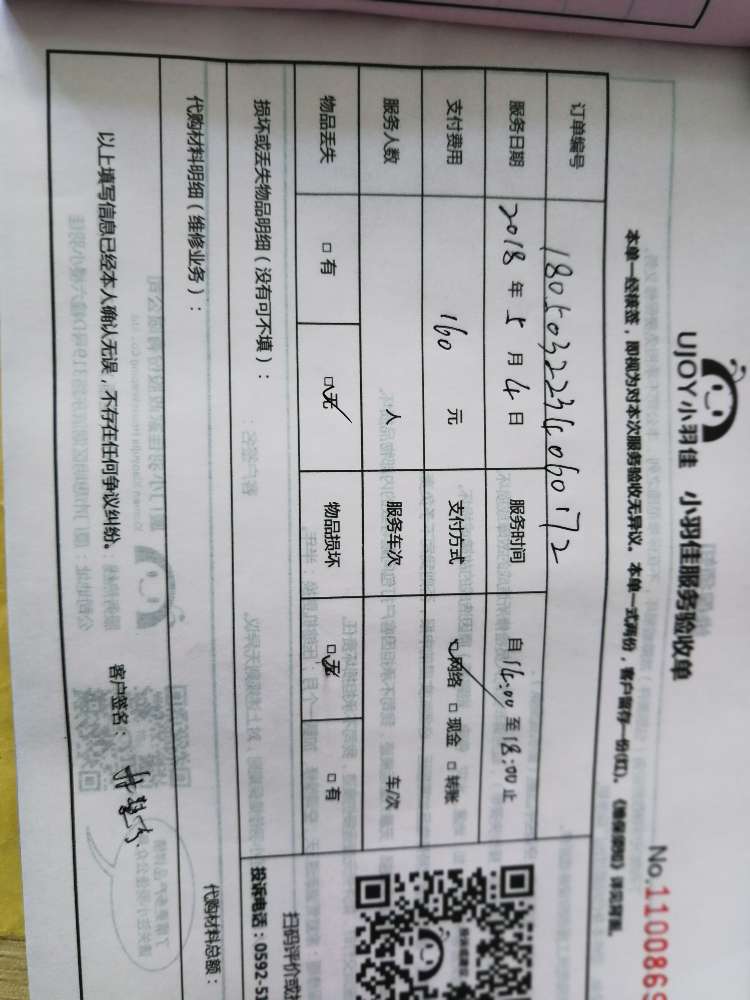 UJOY小羽佳 小羽佳服务验收单
No.110086
本单一经接签，即视为对本次服务验收无异议。本单一式两份，客户留存一份(红)。《维保须知》详见背面。
订单编号 1805032234060172
服务日期 2018年5月4日 服务时间 自14:00至18:00止
支付费用 160元 支付方式 ☑网络 □现金 □转账
服务人数 人 服务车次 车/次
物品丢失 □有 ☑无 物品损坏 ☑无 □有
损坏或丢失物品明细（没有可不填）：
扫码评价或投
投诉电话：0592-51
代购材料明细（维修业务）：
代购材料总额：
以上填写信息已经本人确认无误，不存在任何争议纠纷。 客户签名：